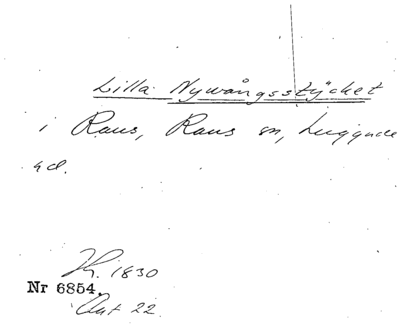 Lilla Nywångsstycket
i Raus, Raus sn, Luggude
hd.
H. 1830
Nr 6854.
Akt 22.